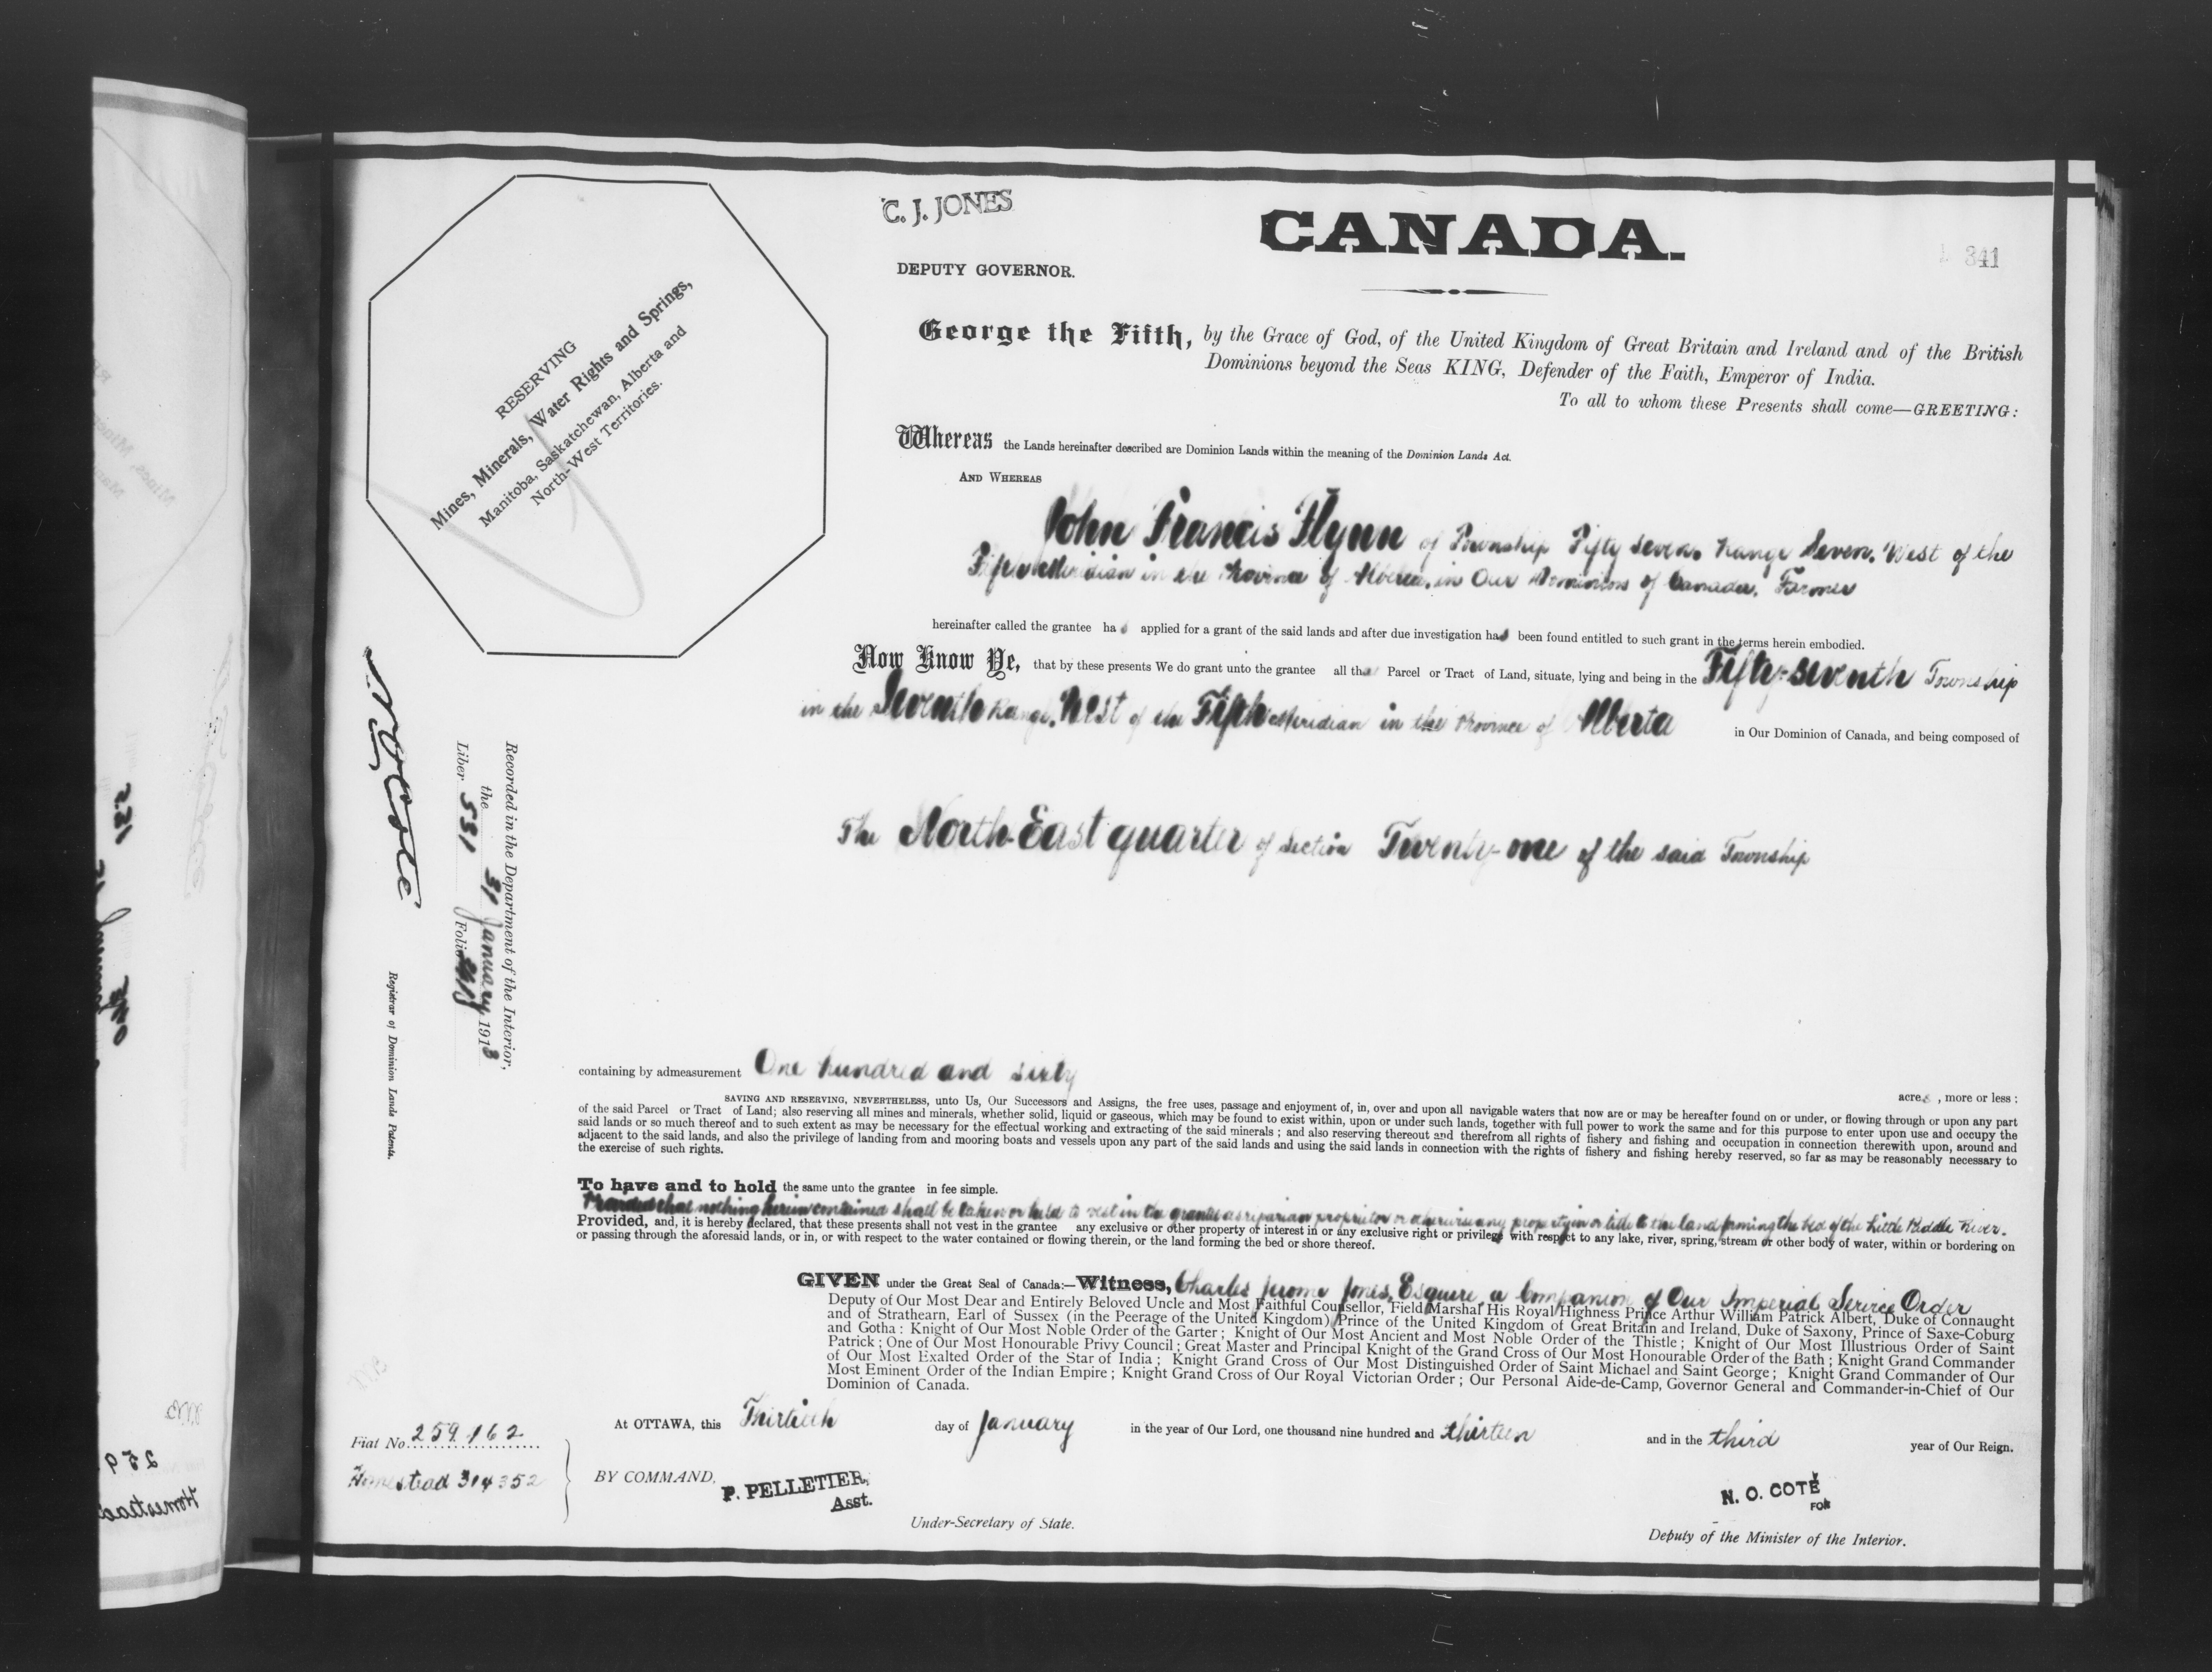 C. J. JONES
DEPUTY GOVERNOR.
CANADA.
341
RESERVING
Mines, Minerals, Water Rights and Springs,
Manitoba, Saskatchewan, Alberta and
North-West Territories.
George the Fifth, by the Grace of God, of the United Kingdom of Great Britain and Ireland and of the British
Dominions beyond the Seas KING, Defender of the Faith, Emperor of India.
To all to whom these Presents shall come—GREETING:
Whereas the Lands hereinafter described are Dominion Lands within the meaning of the Dominion Lands Act.
AND WHEREAS
John Francis Flynn of Township Fifty seven, Range Seven, West of the
Fifth Meridian in the Province of Alberta, in Our Dominion of Canada, Farmer
hereinafter called the grantee has applied for a grant of the said lands and after due investigation has been found entitled to such grant in the terms herein embodied.
Now Know Ye, that by these presents We do grant unto the grantee all that Parcel or Tract of Land, situate, lying and being in the Fifty-seventh Township
in the Seventh Range, West of the Fifth Meridian in the Province of Alberta in Our Dominion of Canada, and being composed of
The North-East quarter of Section Twenty-one of the said Township
N. O. Coté
Registrar of Dominion Lands Patents.
Recorded in the Department of the Interior,
the 31 January 1913
Liber 531 Folio
containing by admeasurement One hundred and sixty
acres, more or less:
SAVING AND RESERVING, NEVERTHELESS, unto Us, Our Successors and Assigns, the free uses, passage and enjoyment of, in, over and upon all navigable waters that now are or may be hereafter found on or under, or flowing through or upon any part
of the said Parcel or Tract of Land; also reserving all mines and minerals, whether solid, liquid or gaseous, which may be found to exist within, upon or under such lands, together with full power to work the same and for this purpose to enter upon use and occupy the
said lands or so much thereof and to such extent as may be necessary for the effectual working and extracting of the said minerals; and also reserving thereout and therefrom all rights of fishery and fishing and occupation in connection therewith upon, around and
adjacent to the said lands, and also the privilege of landing from and mooring boats and vessels upon any part of the said lands and using the said lands in connection with the rights of fishery and fishing hereby reserved, so far as may be reasonably necessary to
the exercise of such rights.
To have and to hold the same unto the grantee in fee simple.
Provided that nothing herein contained shall be taken or held to vest in the grantee as riparian proprietor or otherwise any property in or title to the land forming the bed of the Little Paddle River.
Provided, and, it is hereby declared, that these presents shall not vest in the grantee any exclusive or other property or interest in or any exclusive right or privilege with respect to any lake, river, spring, stream or other body of water, within or bordering on
or passing through the aforesaid lands, or in, or with respect to the water contained or flowing therein, or the land forming the bed or shore thereof.
GIVEN under the Great Seal of Canada:—Witness, Charles Jerome Jones, Esquire, a Companion of Our Imperial Service Order
Deputy of Our Most Dear and Entirely Beloved Uncle and Most Faithful Counsellor, Field Marshal His Royal Highness Prince Arthur William Patrick Albert, Duke of Connaught
and of Strathearn, Earl of Sussex (in the Peerage of the United Kingdom) Prince of the United Kingdom of Great Britain and Ireland, Duke of Saxony, Prince of Saxe-Coburg
and Gotha: Knight of Our Most Noble Order of the Garter; Knight of Our Most Ancient and Most Noble Order of the Thistle; Knight of Our Most Illustrious Order of Saint
Patrick; One of Our Most Honourable Privy Council; Great Master and Principal Knight of the Grand Cross of Our Most Honourable Order of the Bath; Knight Grand Commander
of Our Most Exalted Order of the Star of India; Knight Grand Cross of Our Most Distinguished Order of Saint Michael and Saint George; Knight Grand Commander of Our
Most Eminent Order of the Indian Empire; Knight Grand Cross of Our Royal Victorian Order; Our Personal Aide-de-Camp, Governor General and Commander-in-Chief of Our
Dominion of Canada.
At OTTAWA, this Thirtieth day of January in the year of Our Lord, one thousand nine hundred and thirteen and in the third year of Our Reign.
Fiat No. 259162
Homestead 314352
BY COMMAND,
P. PELLETIER,
Asst.
Under-Secretary of State.
N. O. COTÉ
FOR
Deputy of the Minister of the Interior.